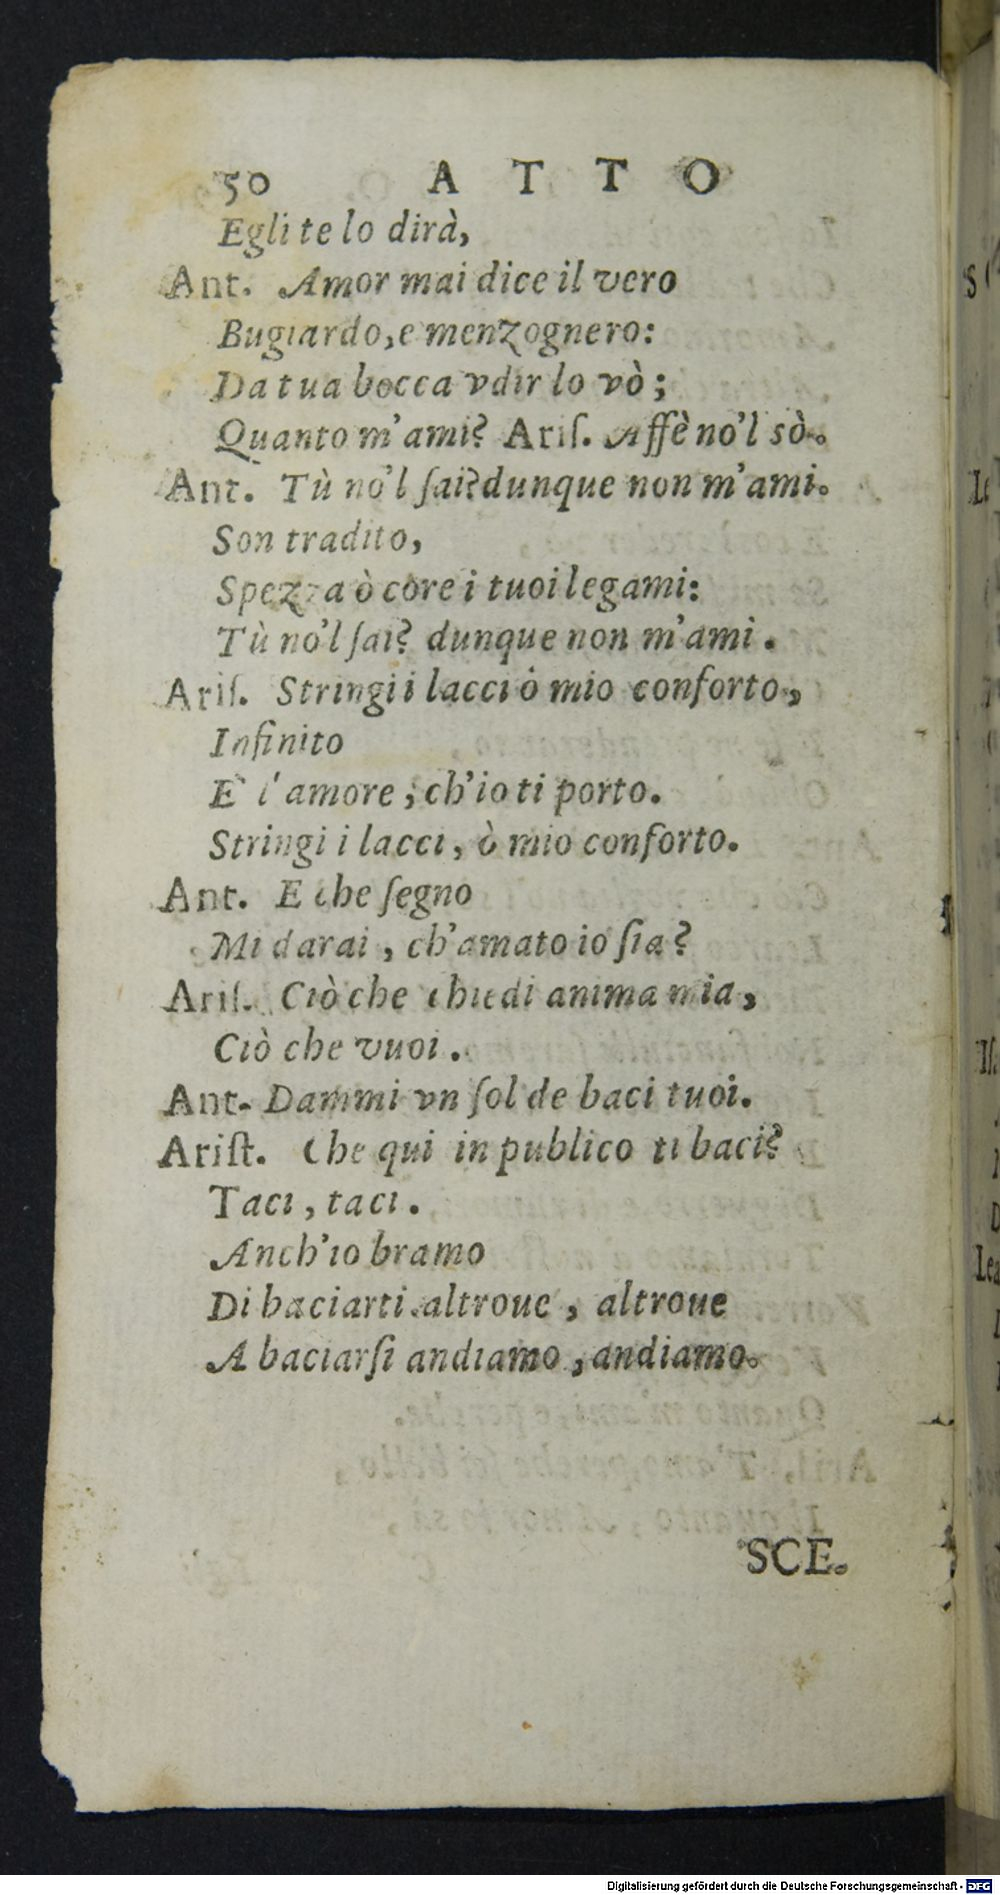 50 ATTO
Egli te lo dirà,
Ant. Amor mai dice il vero
Bugiardo, e menzognero:
Da tua bocca vdir lo vò;
Quanto m'ami? Ariſ. Affè no'l sò.
Ant. Tù no'l ſai? dunque non m'ami.
Son tradito,
Spezza ò core i tuoi legami:
Tù no'l ſai? dunque non m'ami.
Ariſ. Stringi i lacci ò mio conforto,
Infinito
E' l'amore, ch'io ti porto.
Stringi i lacci, ò mio conforto.
Ant. E che ſegno
Mi darai, ch'amato io ſia?
Ariſ. Ciò che chiedi anima mia,
Ciò che vuoi.
Ant. Dammi vn ſol de baci tuoi.
Ariſt. Che qui in publico ti baci?
Taci, taci.
Anch'io bramo
Di baciarti altroue, altroue
A baciarſi andiamo, andiamo.
SCE.
Digitalisierung gefördert durch die Deutsche Forschungsgemeinschaft - DFG